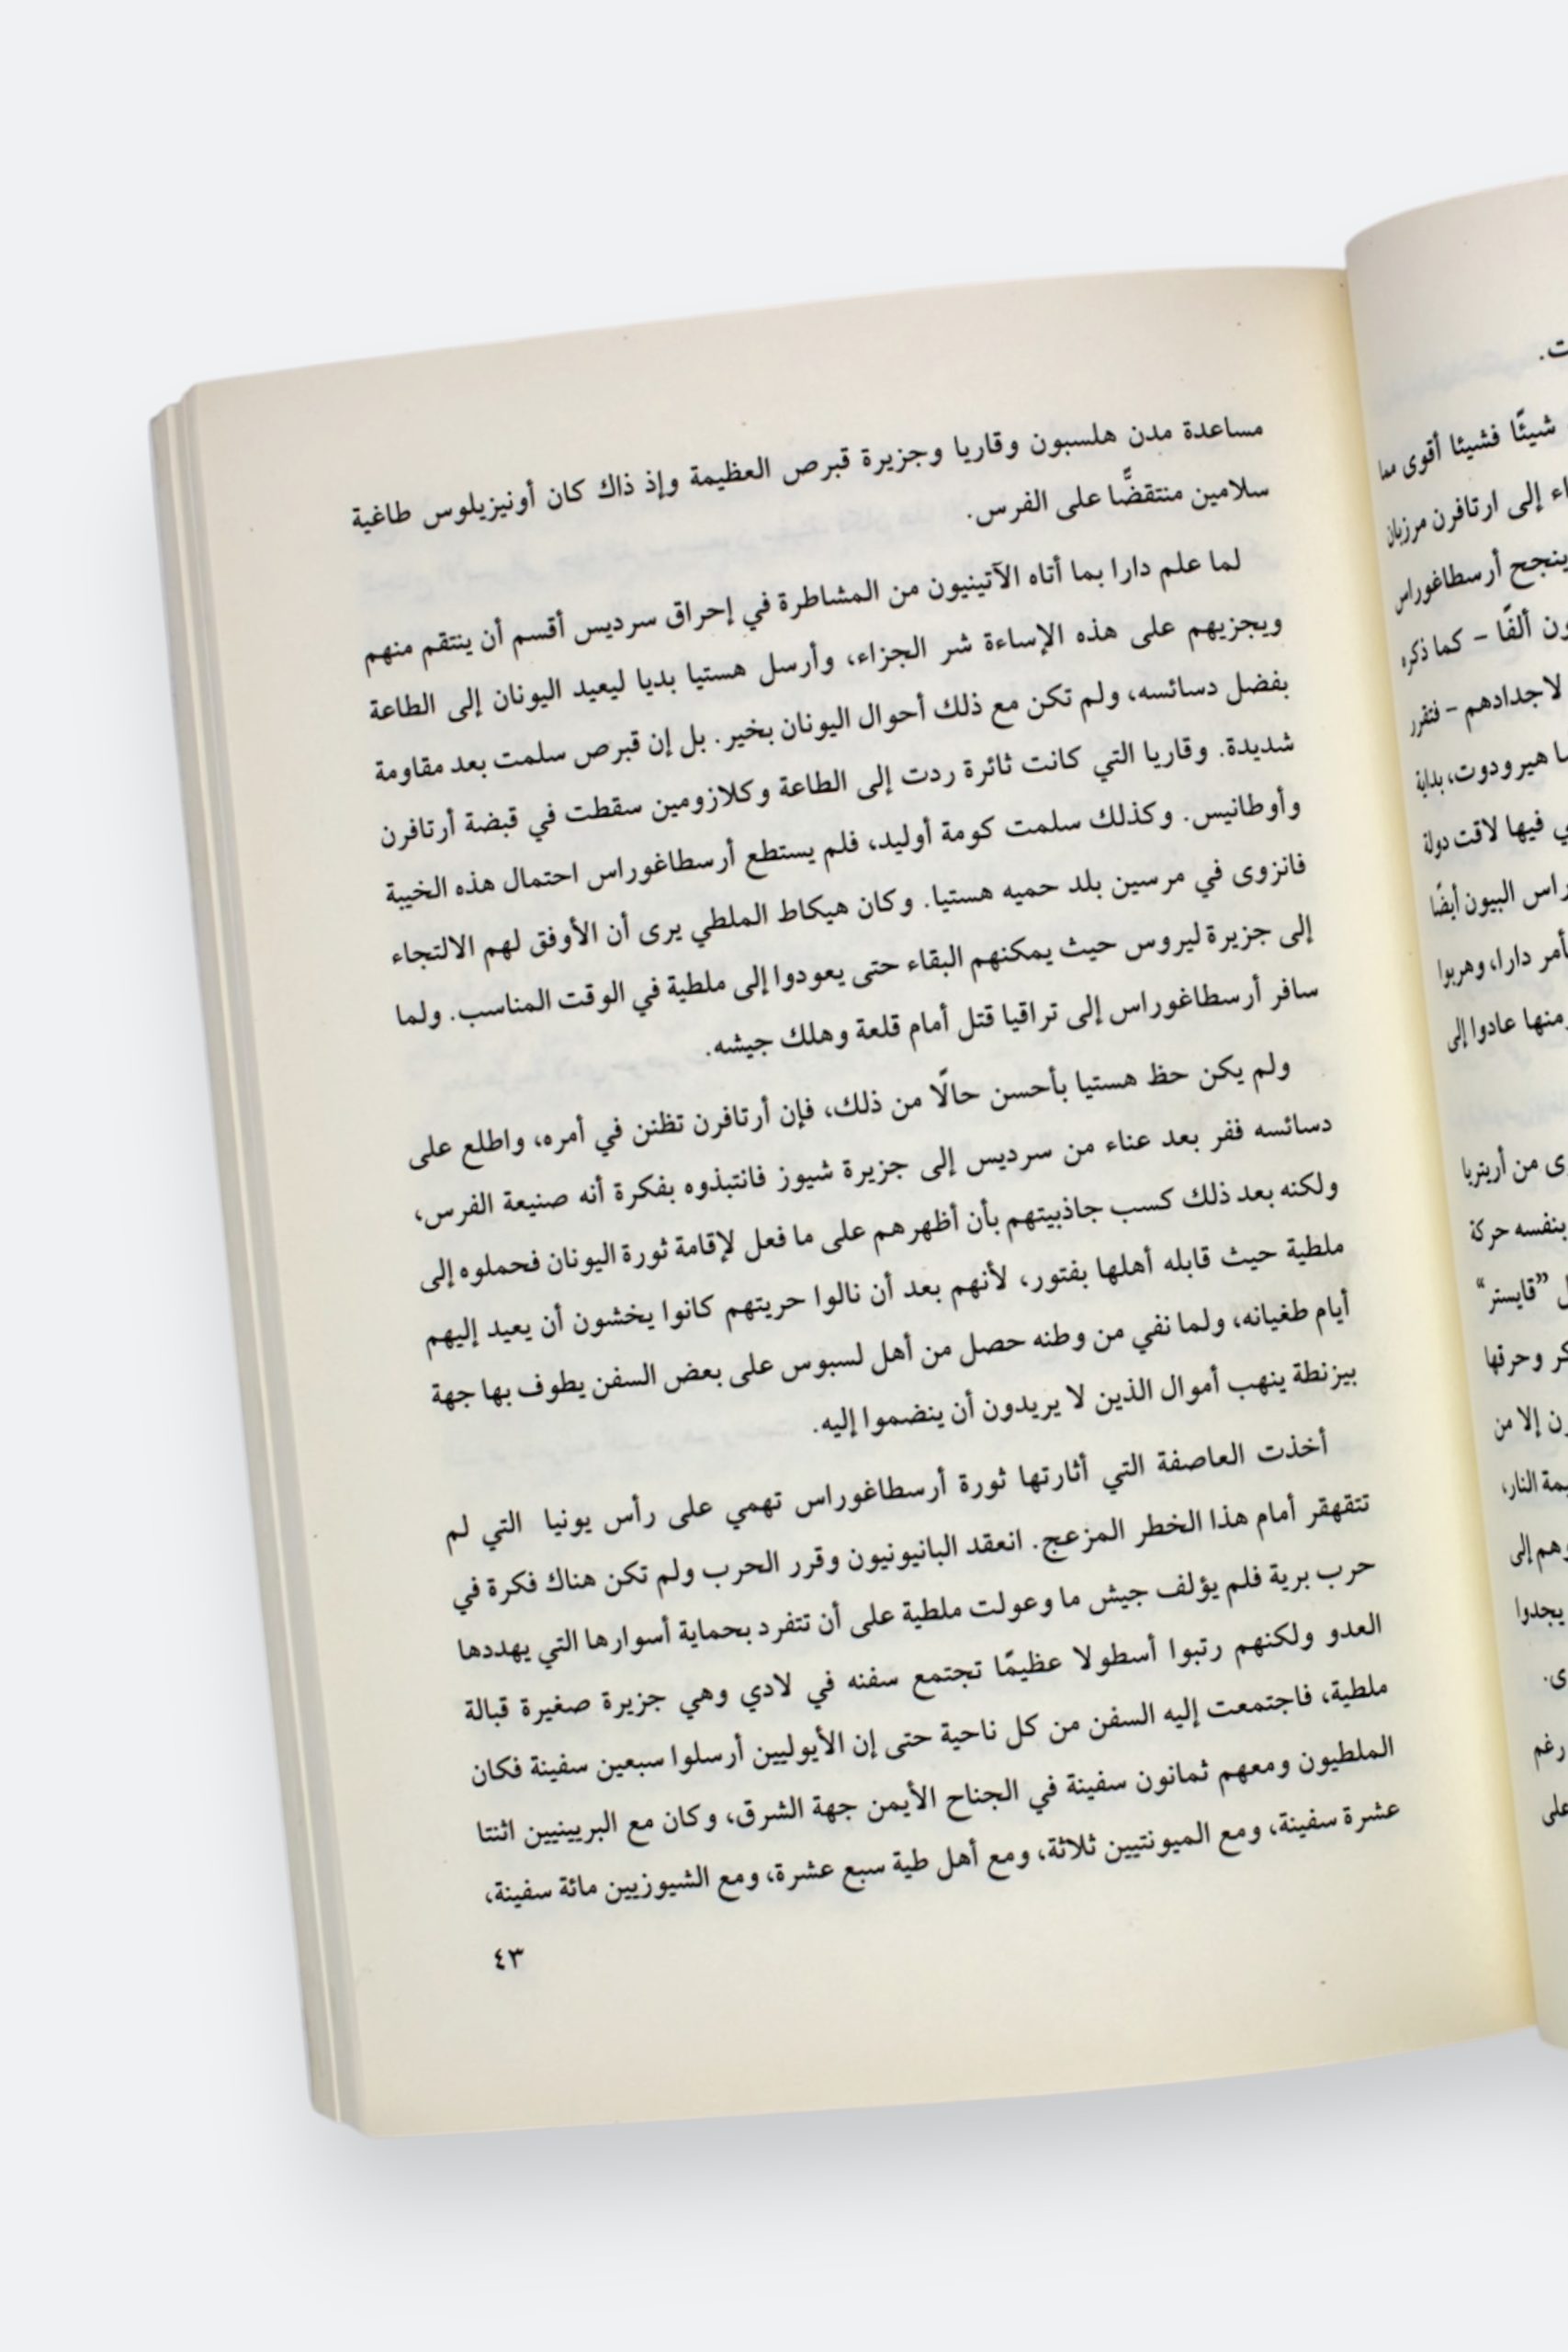 مساعدة مدن هلسبون وقاريا وجزيرة قبرص العظيمة وإذ ذاك كان أونيزيلوس طاغية
سلامين منتقضًّا على الفرس.
لما علم دارا بما أتاه الآتينيون من المشاطرة في إحراق سرديس أقسم أن ينتقم منهم
ويجزيهم على هذه الإساءة شر الجزاء، وأرسل هستيا بديا ليعيد اليونان إلى الطاعة
بفضل دسائسه، ولم تكن مع ذلك أحوال اليونان بخير. بل إن قبرص سلمت بعد مقاومة
شديدة. وقاريا التي كانت ثائرة ردت إلى الطاعة وكلازومين سقطت في قبضة أرتافرن
وأوطانيس. وكذلك سلمت كومة أوليد، فلم يستطع أرسطاغوراس احتمال هذه الخيبة
فانزوى في مرسين بلد حميه هستيا. وكان هيكاط الملطي يرى أن الأوفق لهم الالتجاء
إلى جزيرة ليروس حيث يمكنهم البقاء حتى يعودوا إلى ملطية في الوقت المناسب. ولما
سافر أرسطاغوراس إلى تراقيا قتل أمام قلعة وهلك جيشه.
ولم يكن حظ هستيا بأحسن حالًا من ذلك، فإن أرتافرن تظنن في أمره، واطلع على
دسائسه ففر بعد عناء من سرديس إلى جزيرة شيوز فانتبذوه بفكرة أنه صنيعة الفرس،
ولكنه بعد ذلك كسب جاذبيتهم بأن أظهرهم على ما فعل لإقامة ثورة اليونان فحملوه إلى
ملطية حيث قابله أهلها بفتور، لأنهم بعد أن نالوا حريتهم كانوا يخشون أن يعيد إليهم
أيام طغيانه، ولما نفي من وطنه حصل من أهل لسبوس على بعض السفن يطوف بها جهة
بيزنطة ينهب أموال الذين لا يريدون أن ينضموا إليه.
أخذت العاصفة التي أثارتها ثورة أرسطاغوراس تهمي على رأس يونيا التي لم
تتقهقر أمام هذا الخطر المزعج. انعقد البانيونيون وقرر الحرب ولم تكن هناك فكرة في
حرب برية فلم يؤلف جيش ما وعولت ملطية على أن تتفرد بحماية أسوارها التي يهددها
العدو ولكنهم رتبوا أسطولا عظيمًا تجتمع سفنه في لادي وهي جزيرة صغيرة قبالة
ملطية، فاجتمعت إليه السفن من كل ناحية حتى إن الأيوليين أرسلوا سبعين سفينة فكان
الملطيون ومعهم ثمانون سفينة في الجناح الأيمن جهة الشرق، وكان مع البريينيين اثنتا
عشرة سفينة، ومع الميونتيين ثلاثة، ومع أهل طية سبع عشرة، ومع الشيوزيين مائة سفينة،
٤٣
شيئًا فشيئا أقوى مما
إلى ارتافرن مرزبان
ينجح أرسطاغوراس
ألفًا – كما ذكره
لاجدادهم – فتقرر
هيرودوت، بداية
فيها لاقت دولة
البيون أيضًا
دارا، وهربوا
منها عادوا إلى
من أريتريا
بنفسه حركة
”قايستر“
وحرقها
إلا من
النار،
إلى
يجدوا
رغم